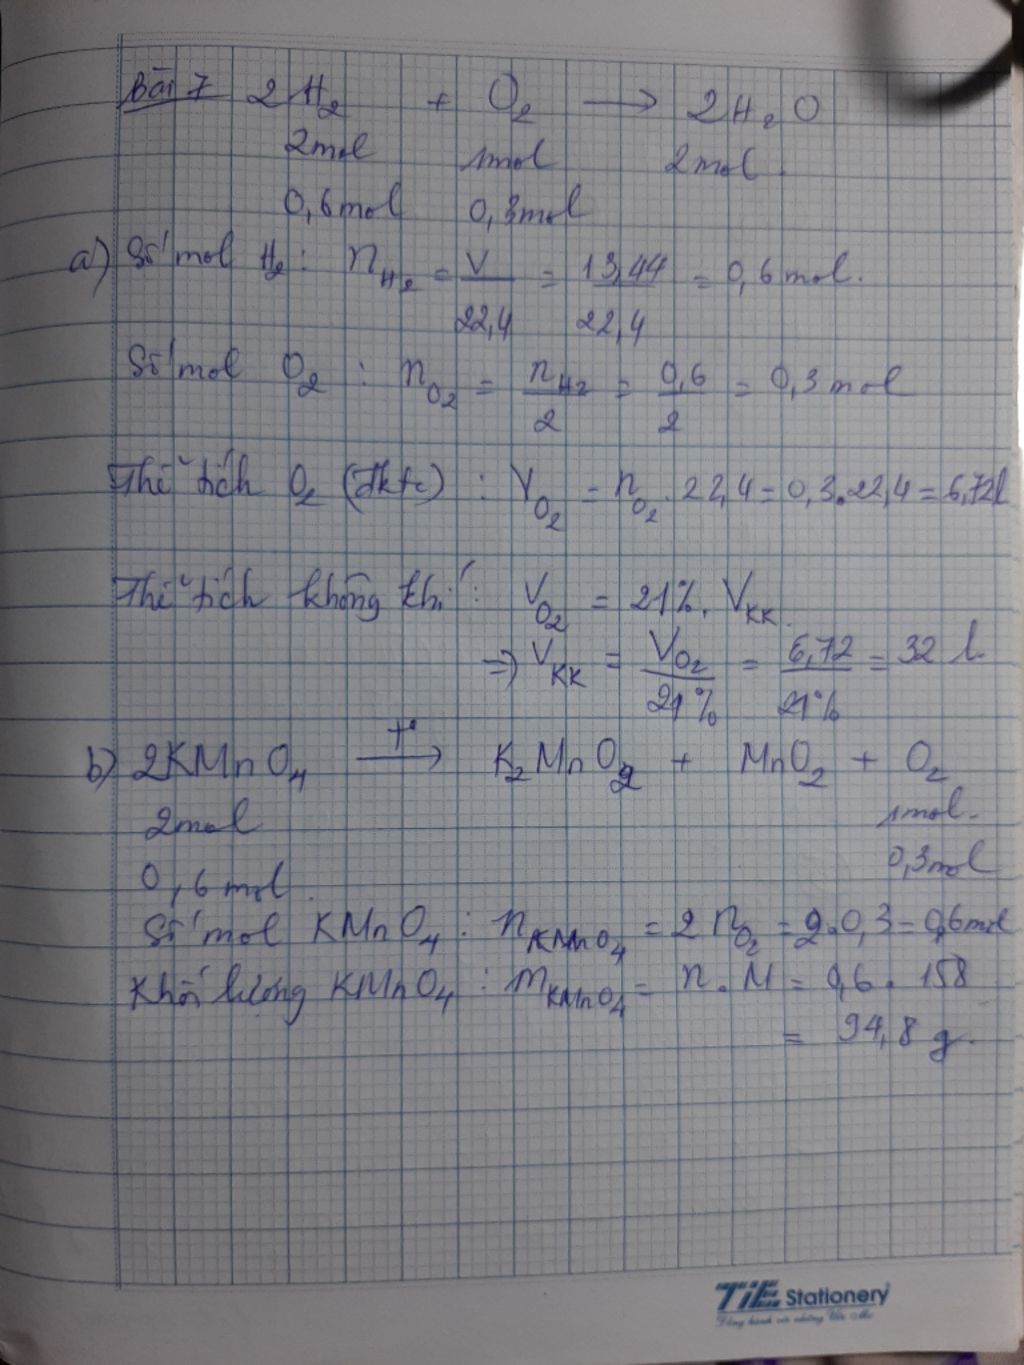 Bài 7 2H₂ + O₂ → 2H₂O
2mol 1mol 2mol
0,6mol 0,3mol
a) Số mol H₂: nH₂ = V/22,4 = 13,44/22,4 = 0,6 mol.
Số mol O₂ : nO₂ = nH₂/2 = 0,6/2 = 0,3 mol
Thể tích O₂ (đktc) : VO₂ = nO₂ . 22,4 = 0,3.22,4 = 6,72l
Thể tích không khí : VO₂ = 21%. VKK
=> VKK = VO₂/21% = 6,72/21% = 32 l
b) 2KMnO₄ —t°→ K₂MnO₂ + MnO₂ + O₂
2mol 1mol.
0,6 mol 0,3mol
Số mol KMnO₄ : nKMnO₄ = 2 nO₂ = 2.0,3 = 0,6mol
Khối lượng KMnO₄ : mKMnO₄ = n . M = 0,6 . 158
= 94,8 g.
TiE Stationery